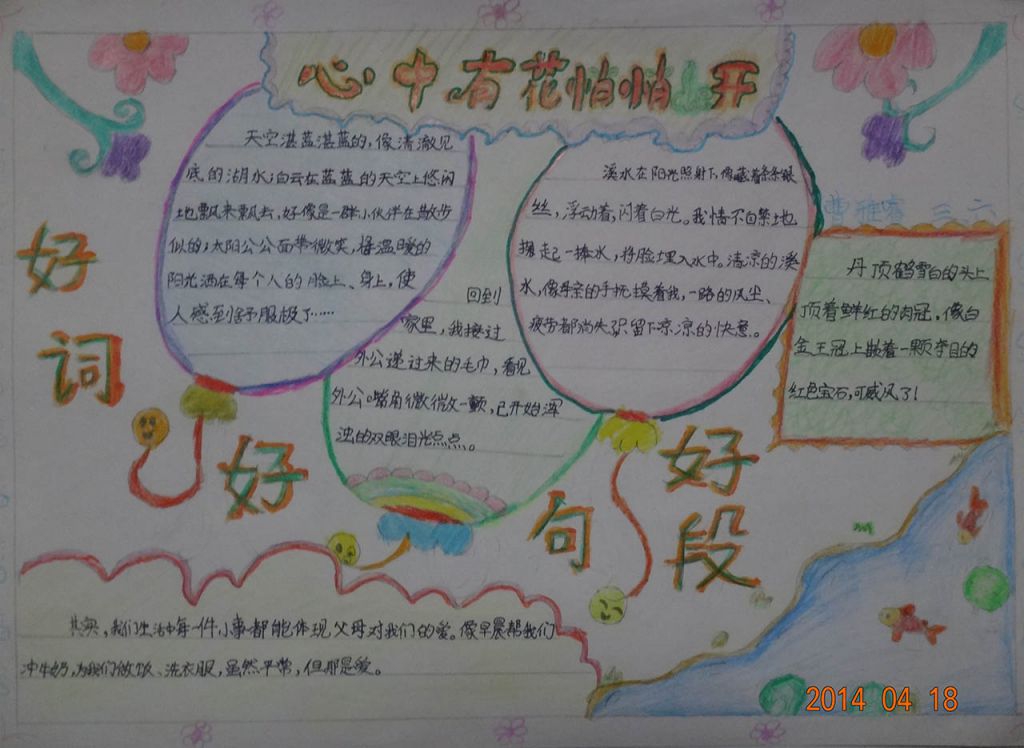 心中有花怕怕开
天空湛蓝湛蓝的，像清澈见
底的湖水；白云在蓝蓝的天空上悠闲
地飘来飘去，好像是一群小伙伴在散步
似的；太阳公公面带微笑，将温暖的
阳光洒在每个人的脸上、身上，使
人感到舒服极了……
溪水在阳光照耀下，像藏着条条银
丝，浮动着，闪着白光。我情不自禁地
掬起一捧水，将脸埋入水中。清凉的溪
水，像母亲的手抚摸着我，一路的风尘、
疲劳都消失，只留下凉凉的快意。
曹雅睿 三、六
丹顶鹤雪白的头上
顶着鲜红的肉冠，像白
金王冠上嵌着一颗夺目的
红色宝石，可威风了！
回到
家里，我接过
外公递过来的毛巾，看见
外公嘴角微微一颤，已开始浑
浊的双眼泪光点点。
好
词
好
句
好
段
其实，我们生活中每一件小事都能体现父母对我们的爱。像早晨帮我们
冲牛奶，为我们做饭、洗衣服，虽然平常，但那是爱。
2014 04 18